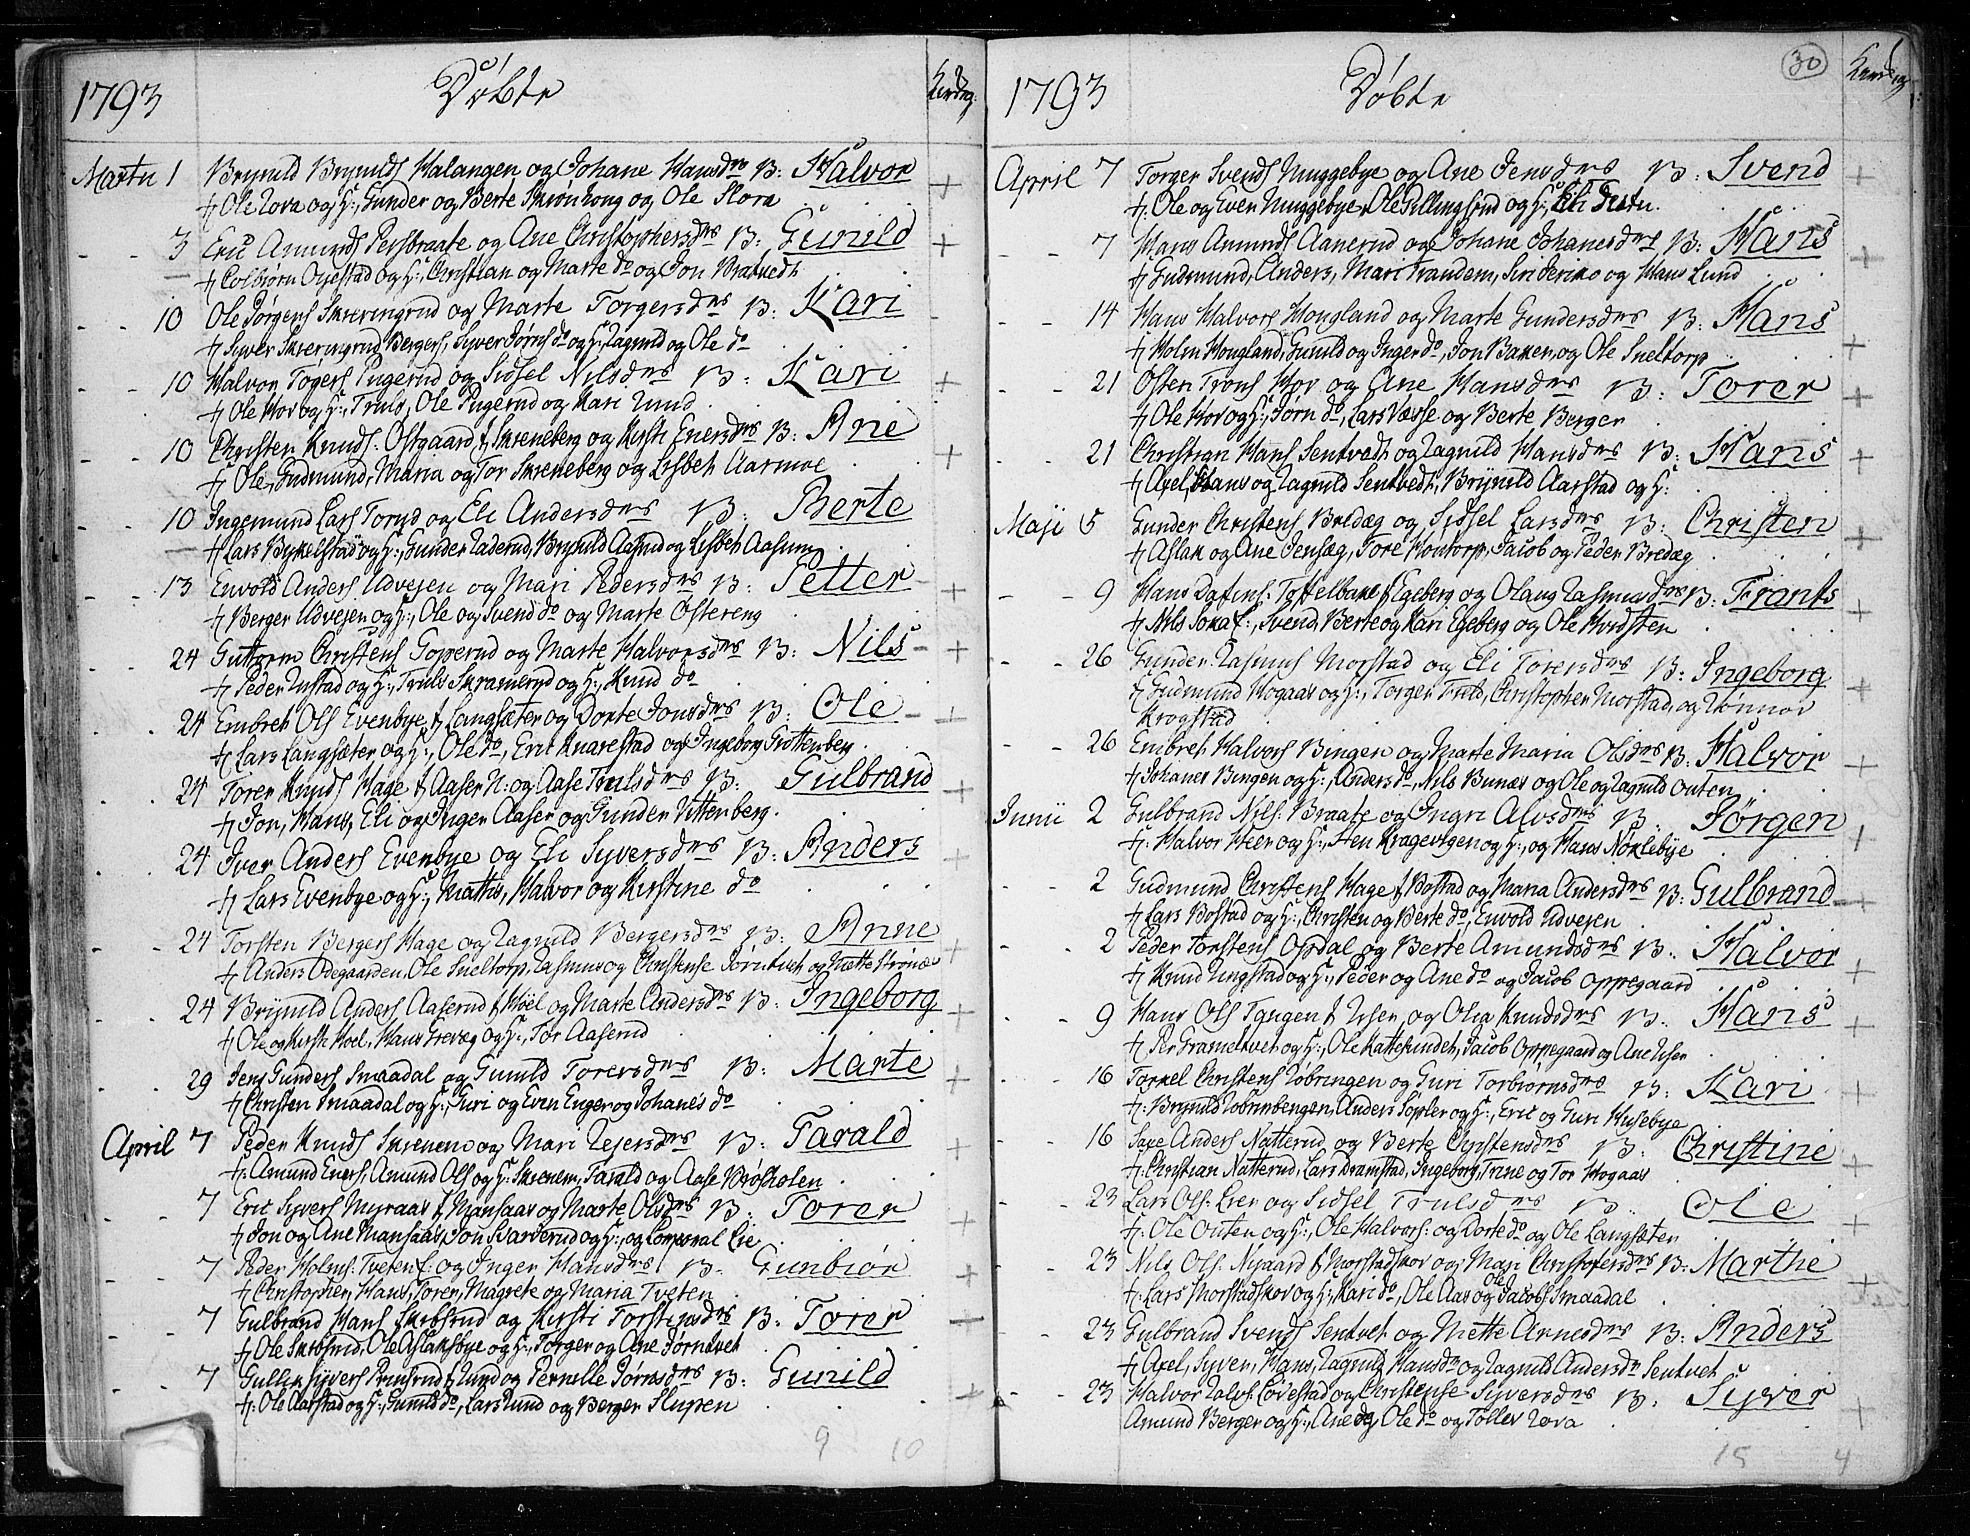 1793 Døbte
Martii 1 Brynild Brynilds Halangen og Johane Hansdrs B: Halvor +
Ole Zova og H:, Gunder og Berte og Ole Flora
- - 3 Eric Amunds Persbraate og Ane Christophersdrs B: Gunild +
og H:, Christian og Marte do og Jon Bratvedt
- - 10 Ole Jørgens Skreeringrud og Marte Torgersdrs B: Kari
Syver Skreeringrud Bergers, Syver Jørns do og H: Ragnild og Ole do
- - 10 Halvor Togers Pugerud og Sidsel Nilsdrs B: Kari +
Ole Hov og H:, Truls, Ole Pugerud og Kari Lund
- - 10 Christen Knuds Ostgaard f Skreneberg og Kirsti Enersdrs B: Ane +
Ole, Gudmund, Maria og Tor Skreneberg og Lisbeth Aarmoe
- - 10 Ingemund Lars Torud og Eli Andersdrs B: Berte
Lars Bykelstad og H:, Gunder Raderud, Brynild Aasrud og Lisbeth Aasrum
- - 13 Envold Anders Udvejen og Mari Pedersdrs B: Petter +
Berger Udvejen og H:, Ole og Svend do og Marte Østereng
- - 24 Guttorm Christens Gopperud og Marte Halvorsdrs B: Nils +
Peder Rustad og H:, Truls Skramerud og H:, Knud do
- - 24 Embret Ols Evenbye f Langsæter og Dorte Jonsdrs B: Ole +
Lars Langsæter og H:, Ole do, Eric Knarestad og Ingeborg Grottenberg
- - 24 Torer Knuds Hage f Aaser N: og Aase Trulsdrs B: Gulbrand +
Jon, Hans, Eli og Inger Aaser og Gunder Vittenberg
- - 24 Iver Anders Evenbye og Eli Syversdrs B: Anders +
Lars Evenbye og H:, Mathis, Halvor og Kirstine do
- - 24 Torsten Bergers Hage og Ragnild Bergersdrs B: Anne +
Anders Odegaarden, Ole Sneltorp, Rasmus og Christense Jørntvet og Mette
- - 24 Brynild Anders Aaserud f Hoel og Marte Andersdrs B: Ingeborg +
Ole og Kirsti Hoel, Hans Grevæg og H:, Tor Aaserud
- - 29 Jens Gunders Smaadal og Gunild Torersdrs B: Marte +
Christen Smaadal og H:, Guri og Even Enger og Johanes do
April 7 Peder Knuds Skrenem og Mari Rejersdrs B: Tarald +
Amund Eners, Amund Ols og H: Skrenem, Tarald og Aase Brøsholen
- - 7 Eric Syvers Myraas f Mansaas og Marte Olsdrs B: Torer +
Jon og Ane Mansaas, Jon Barderud og H:, og Corporal Lie
- - 7 Peder Holms: Tveten f: og Inger Hansdrs B: Gunbiør +
Christopher, Hans, Torer, Magrete og Maria Tveten
- - 7 Gulbrand Hans Skibsrud og Kirsti Torstensdrs B: Torer +
Ole Skibsrud, Ole Aslaksbye og H:, Torger og Ane Jørntvet
- - 7 Gullik Syvers Prinsrud f Lund og Pernille Jørnsdrs B: Gunild +
Ole Aarstad og H:, Gunild do, Lars Lund og Berger Slupen
9 10
1793 Døbte 30
April 7 Torger Svends Muggebye og Ane Jensdrs B: Svend +
Ole og Even Muggebye, Ole Dillingsrud og H:, Eli
- - 7 Hans Amunds Aanerud og Johane Johanesdrs B: Hans +
Gudmund, Anders, Mari Trandem, Siri Jeriko og Hans Lund
- - 14 Hans Halvors Hougland og Marte Gundersdrs B: Hans
Holm Hougland, Gunild og Inger do, Jon Bakken og Ole Sneltorp +
- - 21 Osten Trons Hov og Ane Hansdrs B: Torer
Ole Hov og H:, Jørn do, Lars Væsse og Berte Berger +
- - 21 Christian Hans Sentvedt og Ragnild Hansdrs B: Hans +
Axel, Hans og Ragnild Sentvedt, Brynild Aarstad og H:
Maji 5 Gunder Christens Bredæg og Sidsel Larsdrs B: Christen +
Aslak og Ane Jensæg, Tore Kontorp, Jacob og Peder Bredæg
- - 9 Hans Toffelbake f Egeberg og Olaug Rasmusdrs B: Frants +
Nils, Svend, Berte og Kari Egeberg og Ole Kvidsten
- - 26 Gunder Rasmus Morstad og Eli Torensdrs B: Ingeborg +
Gudmund Hogaas og H:, Torger Fuld, Christopher Morstad og Rønnov
Krogstad
- - 26 Embret Halvors Bingen og Marte Maria Olsdrs B: Halvor +
Johanes Bingen og H:, Anders do, Nils Bunæs og Ole og Ragnild Outen
Junii 2 Gulbrand Nils: Braate og Ingri Alvsdrs B: Jørgen +
Halvor Heer og H:, Sten Kragevigen og H:, og Hans Noklebye
- - 2 Gudmund Christens Hage f Bostad og Maria Andersdrs B: Gulbrand +
Lars Bostad og H:, Christen og Berte do, Envold Udvejen
- - 2 Peder Torstens Opdal og Berte Amundsdrs B: Halvor
Knud Ringstad og H:, Peder og Ane do og Jacob Oppegaard +
- - 9 Hans Ols Tangen f Risen og Olia Knudsdrs B: Hans +
Per Grameltvet og H:, Ole Kattesundet, Jacob Oppegaard og Ane Risen
- - 16 Torkel Christens Robringen og Guri Torbiørnsdrs B: Kari +
Brynild, Anders Sopler og H:, Eric og Guri Husebye
- - 16 Saxe Anders Natterud og Berte Christensdrs B: Christine
Christian Natterud, Lars Bramstad, Ingeborg, Trine og Tor Hogaas +
- - 23 Lars Ols: Lier og Sidsel Trulsdrs B: Ole
Ole Outen og H:, Ole Halvors: og Dorte do og Ole Langsæter +
- - 23 Nils Ols: Nygaard f Morstadskov og Mari Christofersdrs B: Marthe
Lars Morstadskov og H:, Kari do, Ole Aas og Ole Jacobs Smaadal +
- - 23 Gulbrand Svends Sentvet og Mette Arnesdrs B: Anders
Axel, Syver, Hans, Ragnild Hansdr og Ragnild Andersdr Sentvet +
- - 23 Halvor Ralvs: Lovestad og Christense Syversdrs B: Syver
Amund Berger og H:, Ane og Ole do og Tollev Rova +
15 4